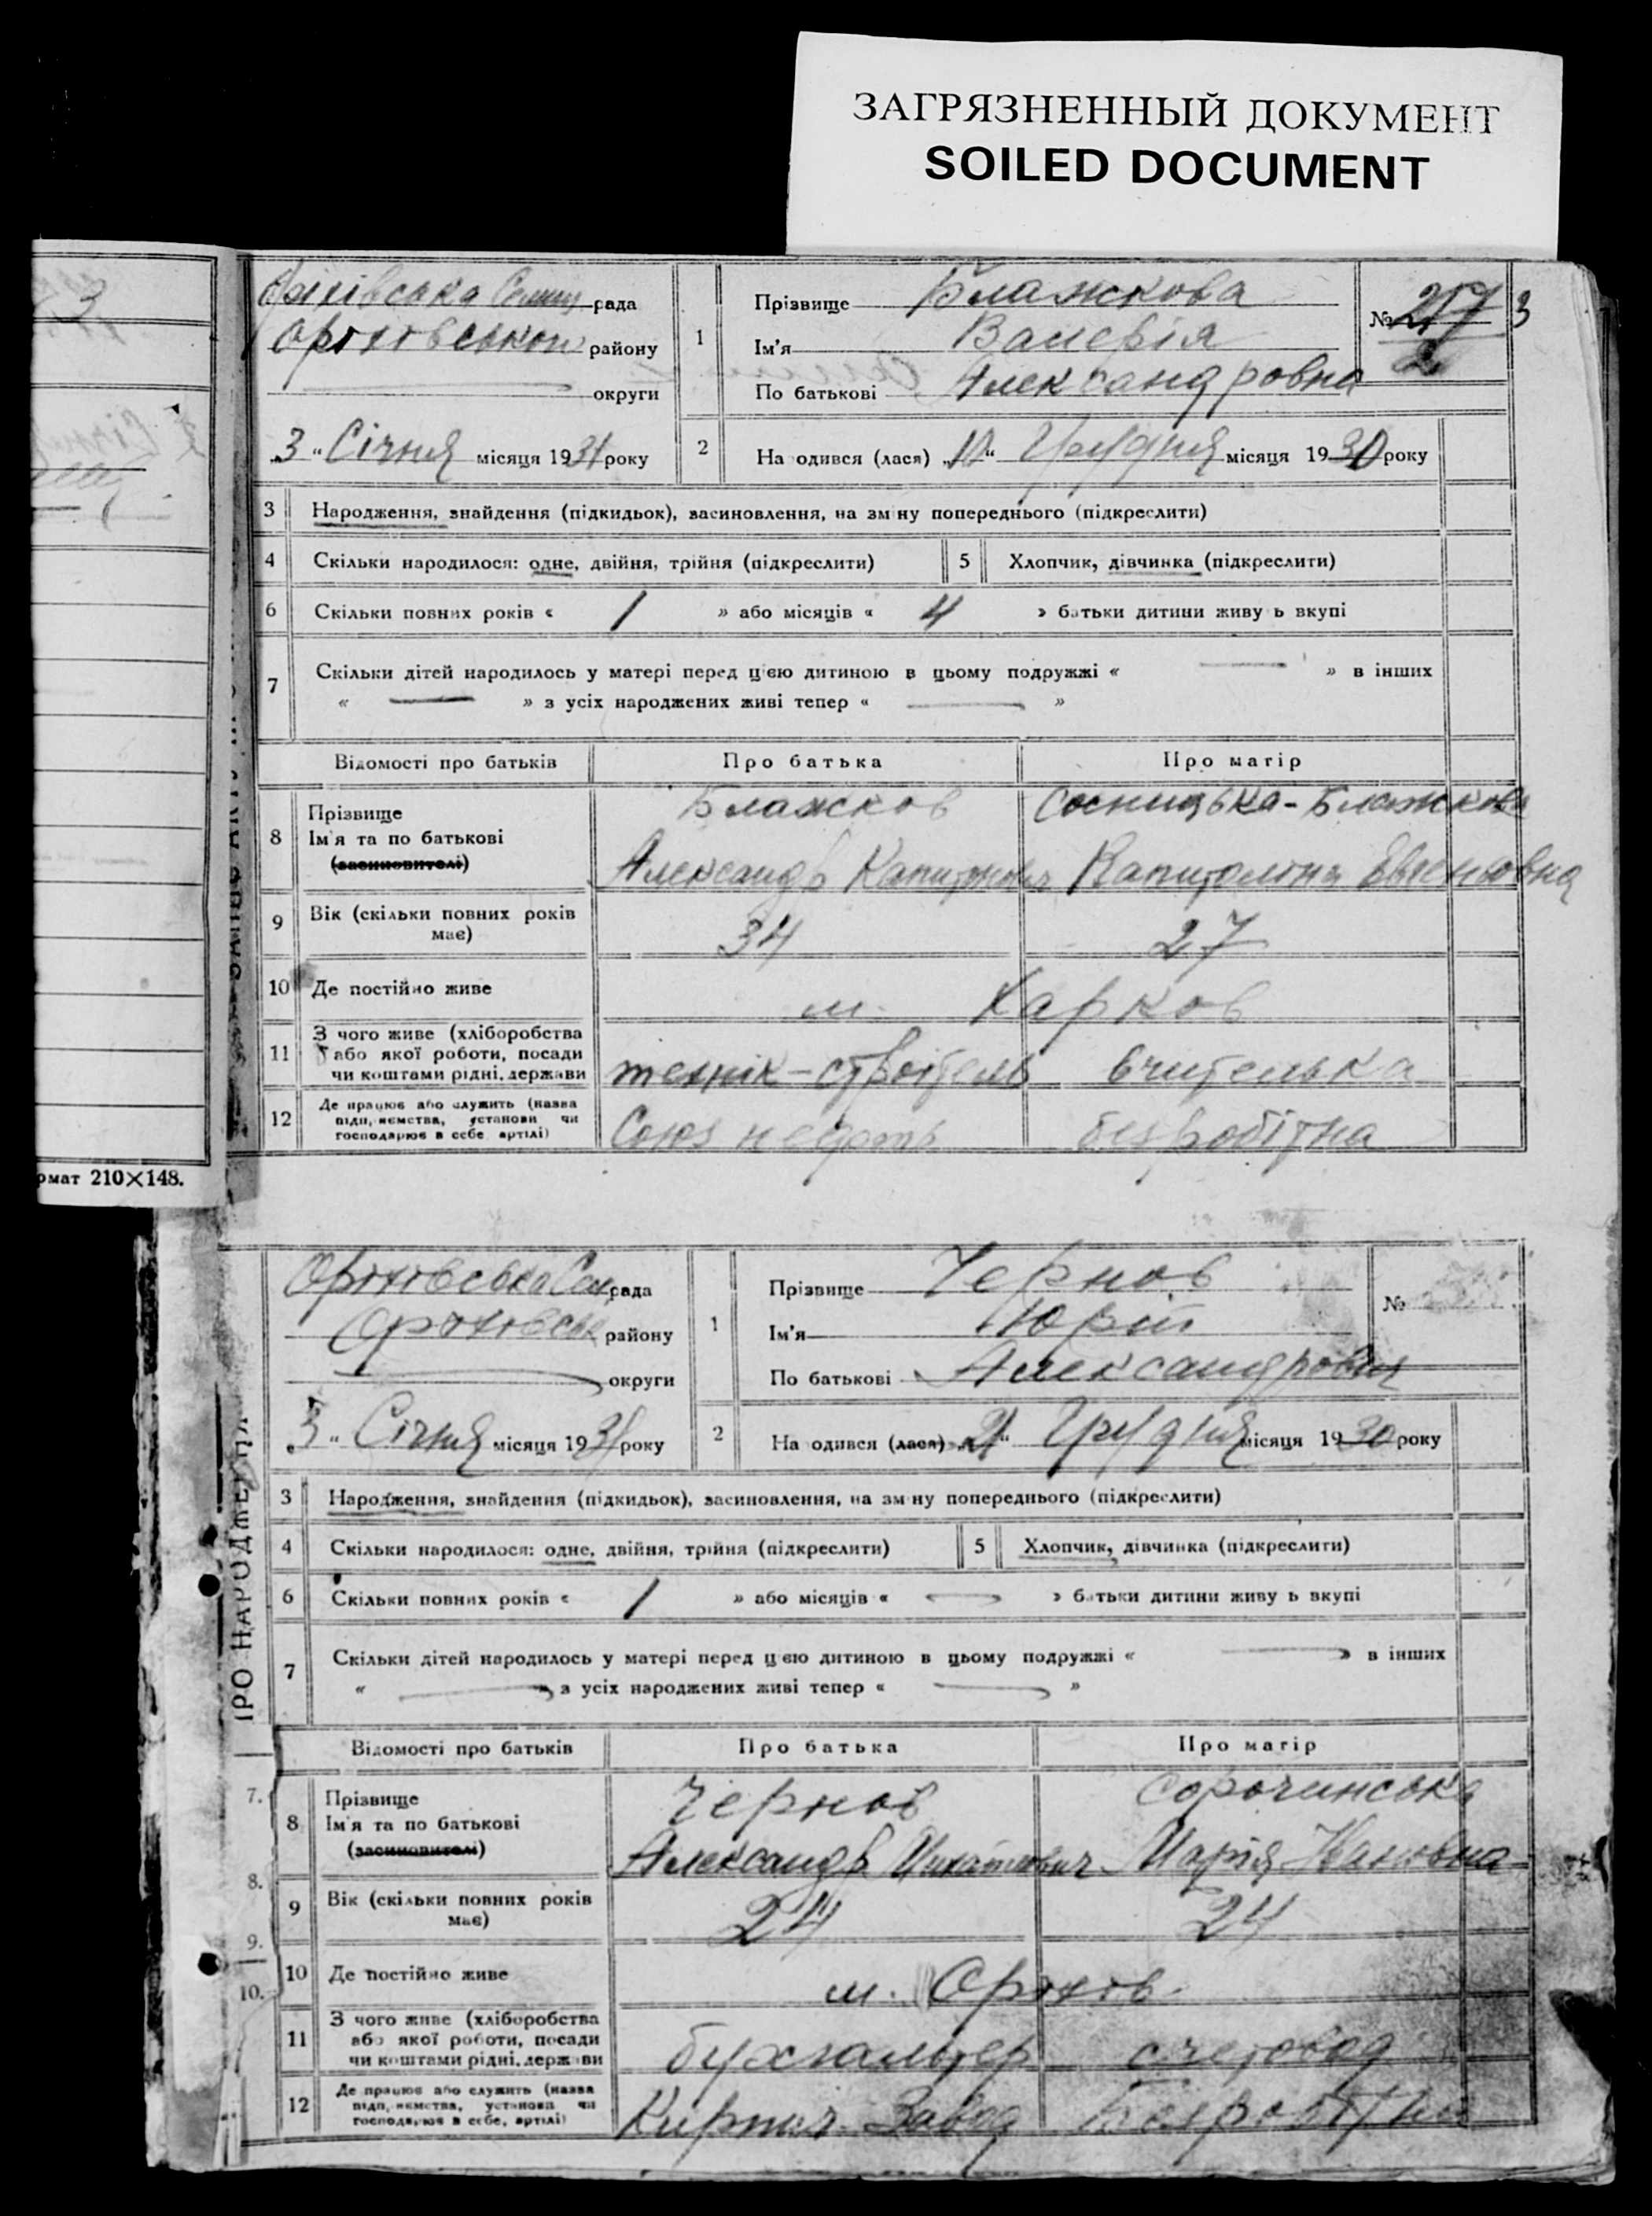 ЗАГРЯЗНЕННЫЙ ДОКУМЕНТ
SOILED DOCUMENT
3
рмат 210×148.
Оріхівська Селищ рада
Оріхівського району
округи
"3" Січня місяця 1931 року
1
Прізвище Блажкова
Ім'я Валерія
По батькові Александровна
№ 3
2
2 На одився (лася) " " Грудня місяця 1930 року
3 Народження, знайдення (підкидьок), засиновлення, на зміну попереднього (підкреслити)
4 Скільки народилося: одне, двійня, трійня (підкреслити) 5 Хлопчик, дівчинка (підкреслити)
6 Скільки повних років « 1 » або місяців « 4 » батьки дитини живу ь вкупі
7 Скільки дітей народилось у матері перед цією дитиною в цьому подружжі « — » в інших
« — » з усіх народжених живі тепер « — »
Відомості про батьків Про батька Про матір
8 Прізвище Блажков Сосницька-Блажкова
Ім'я та по батькові
(засиновителі) Александр Капитонович Капитоліна Евгеньовна
9 Вік (скільки повних років має) 34 27
10 Де постійно живе м. Харков
11 З чого живе (хліборобства
або якої роботи, посади
чи коштами рідні, держави технік-строітель вчителька
12 Де працює або служить (назва
підприємства, установи чи
господарює в себе, артілі) Союз нефть безробітна
ПРО НАРОДЖЕННЯ
Оріхівська Сел рада
Оріхівськ району
округи
"3" Січня місяця 1931 року
1
Прізвище Чернов
Ім'я Юрій
По батькові Александрович
№
2 На одився (лася) "21" Грудня місяця 1930 року
3 Народження, знайдення (підкидьок), засиновлення, на зміну попереднього (підкреслити)
4 Скільки народилося: одне, двійня, трійня (підкреслити) 5 Хлопчик, дівчинка (підкреслити)
6 Скільки повних років « 1 » або місяців « — » батьки дитини живу ь вкупі
7 Скільки дітей народилось у матері перед цією дитиною в цьому подружжі « — » в інших
« — » з усіх народжених живі тепер « — »
Відомості про батьків Про батька Про матір
7.
8 Прізвище Чернов Сорочинська
Ім'я та по батькові
(засиновителі) Александр Марія Івановна
8.
9 Вік (скільки повних років має) 24 24
9.
10 Де постійно живе м. Оріхів
10.
11 З чого живе (хліборобства
або якої роботи, посади
чи коштами рідні, держави бухгальтер счетовод
12 Де працює або служить (назва
підприємства, установи чи
господарює в себе, артілі) Кирпич. Завод Безробітна